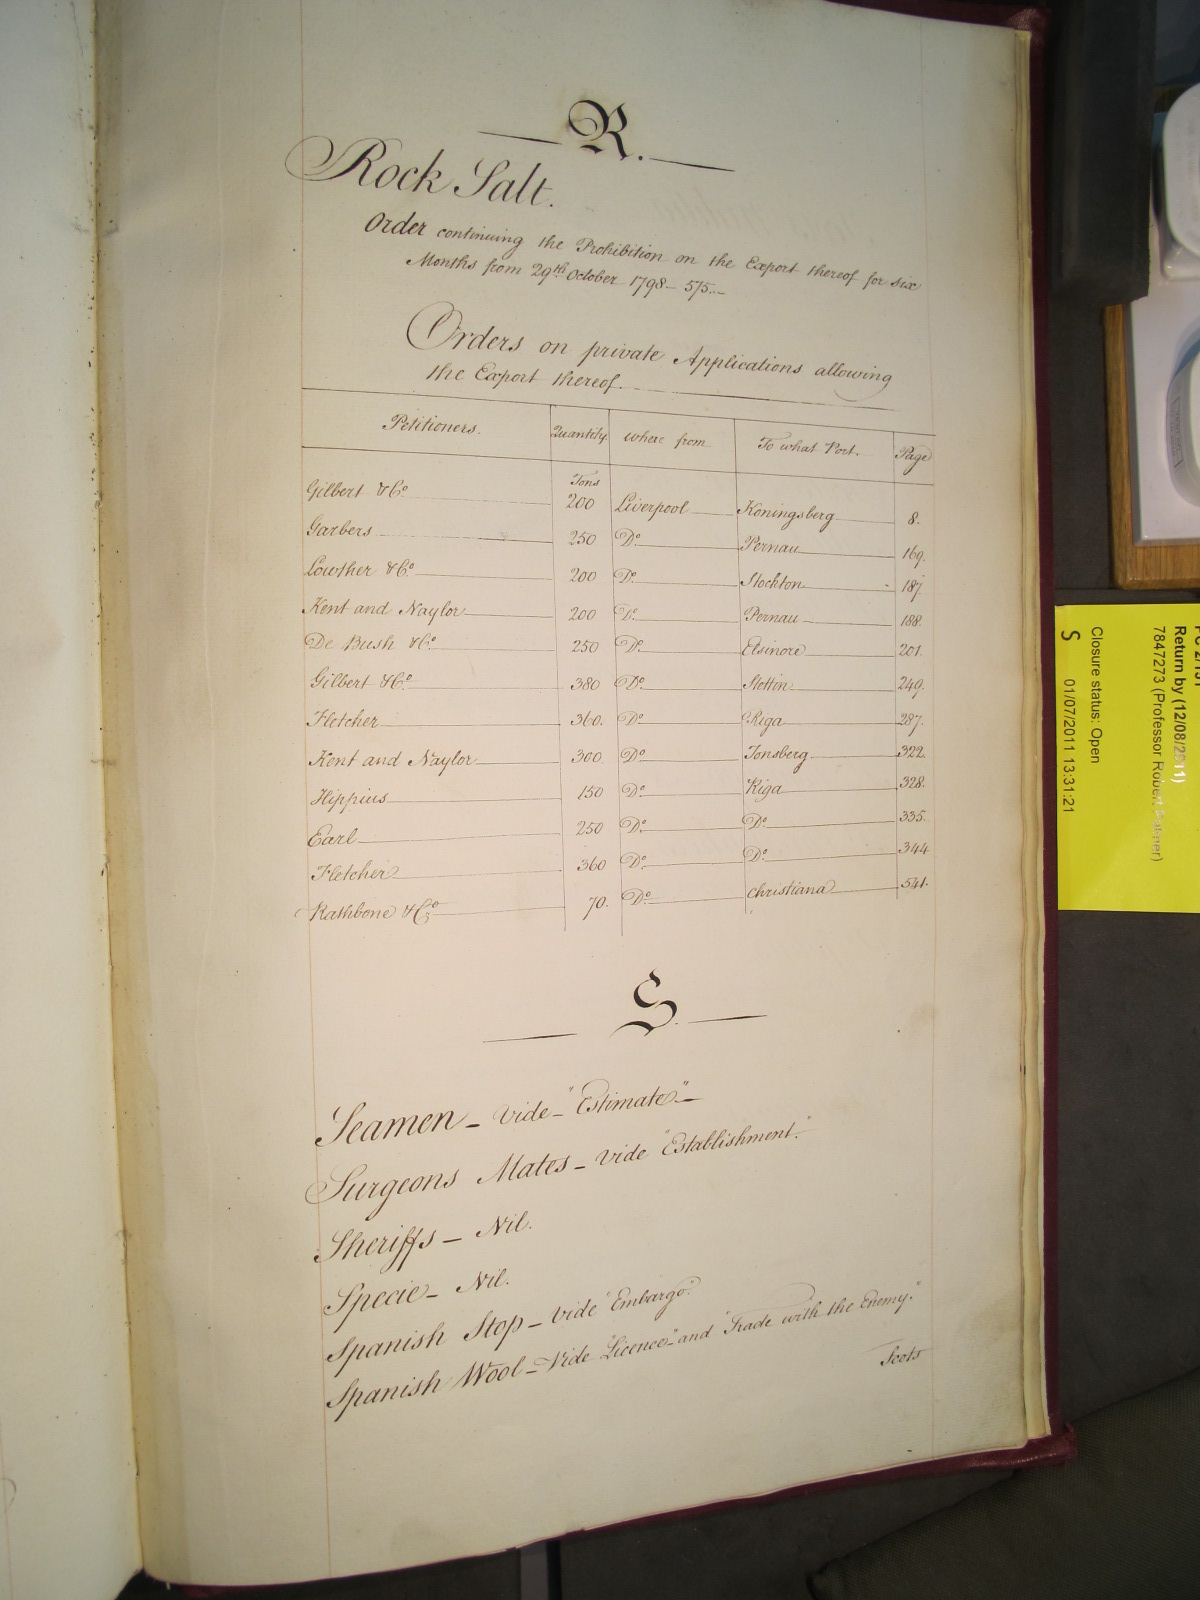 R.
Rock Salt.
Order continuing the Prohibition on the Export thereof for six
Months from 29th October 1798 - 575.-
Orders on private Applications allowing
the Export thereof.
Petitioners. Quantity where from To what Port. Page
Tons
Gilbert & Co. 200 Liverpool Koningsberg 8.
Garbers 250 Do. Pernau 169.
Lowther & Co. 200 Do. Stockton 187
Kent and Naylor 200 Do. Pernau 188.
De Bush & Co. 250 Do. Elsinore 201.
Gilbert & Co. 380 Do. Stettin 249.
Fletcher 360. Do. Riga 287.
Kent and Naylor 300 Do. Tonsberg 322.
Hippius 150 Do. Riga 328.
Earl 250 Do. Do. 335.
Fletcher 360 Do. Do. 344
Rathbone & Co. 70. Do. Christiana 541.
S.
Seamen - Vide - "Estimate" -
Surgeons Mates - vide "Establishment."
Sheriffs - Nil.
Specie - Nil.
Spanish Stop - vide "Embargo."
Spanish Wool - Vide "Licence" and "Trade with the Enemy."
Scots
Return by (12/08/2011)
7847273 (Professor Robert
Closure status: Open
S 01/07/2011 13:31:21